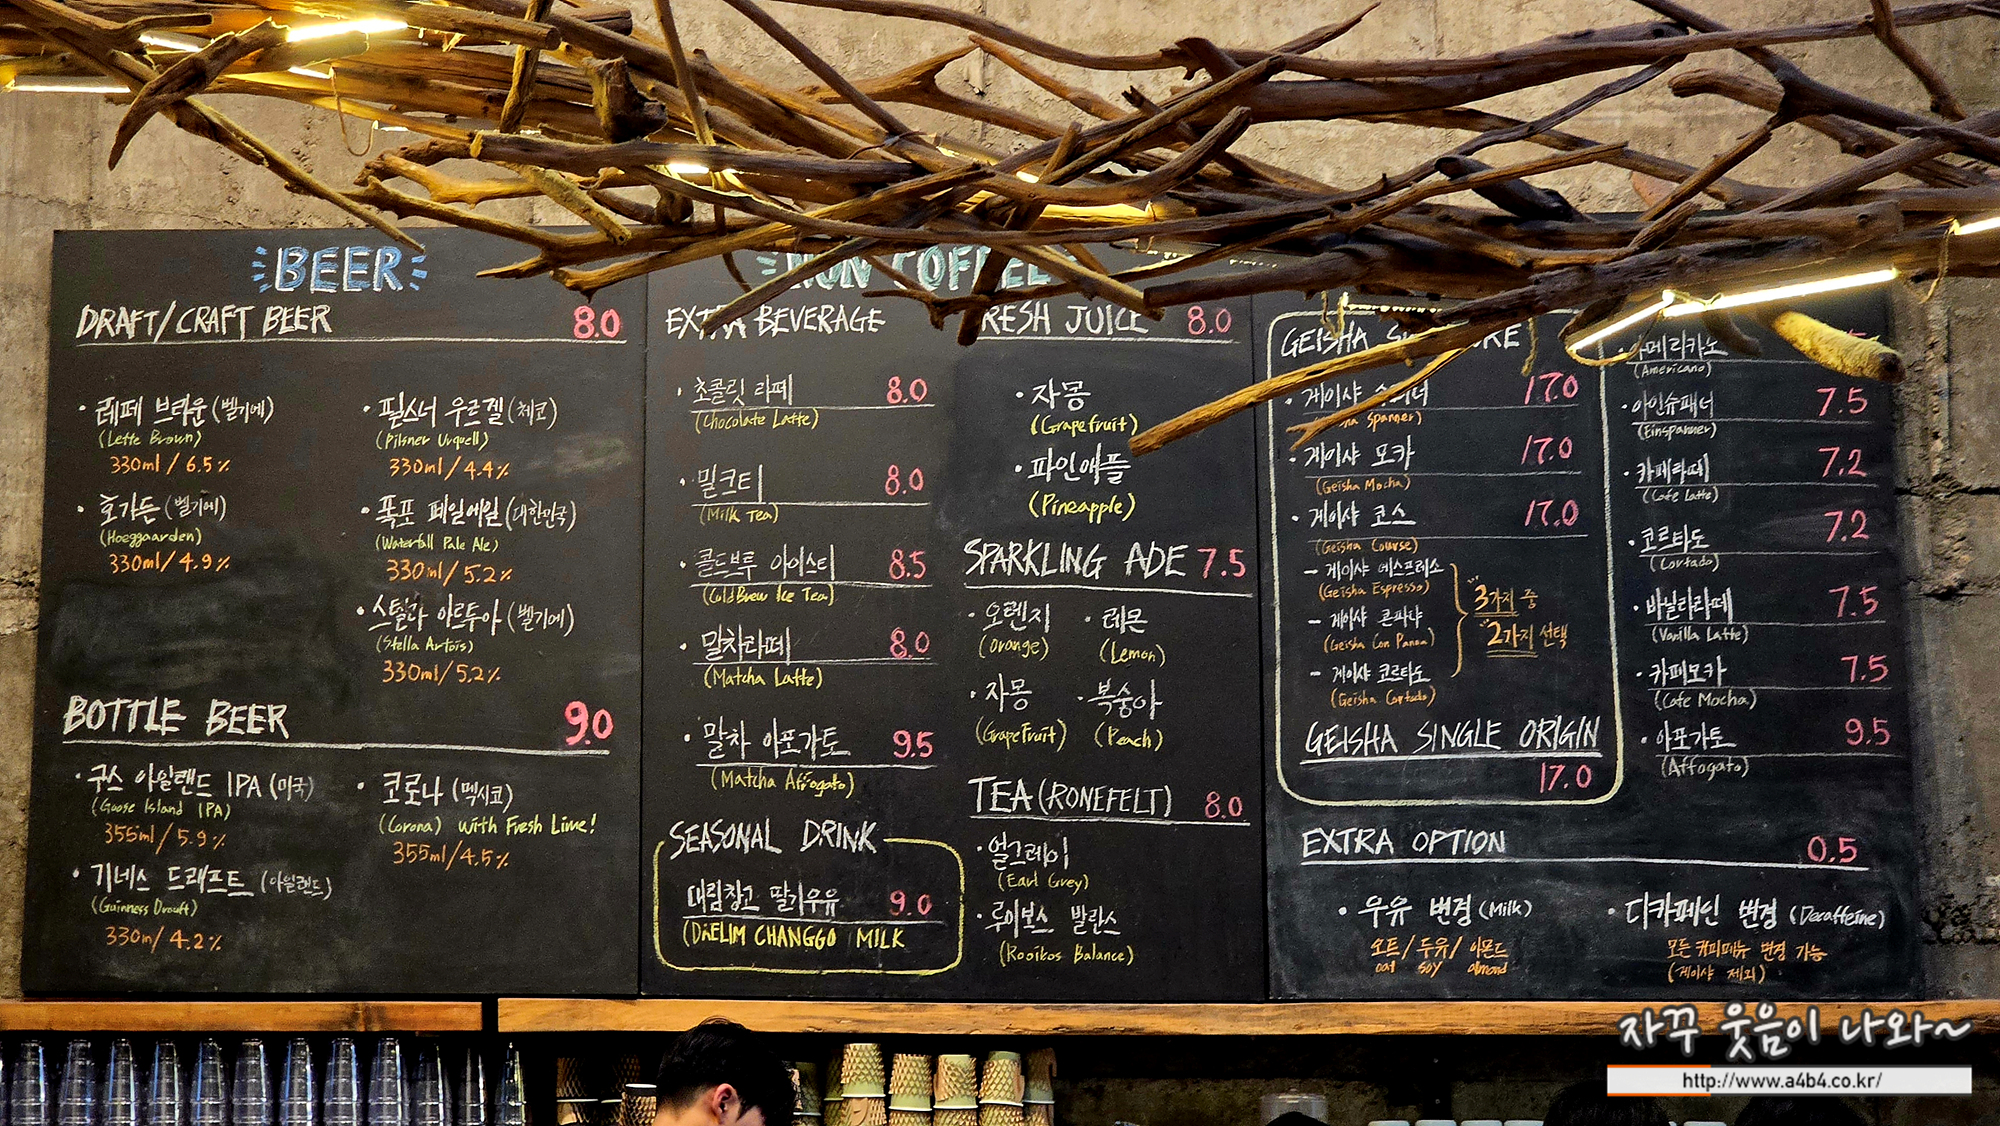 BEER
DRAFT/CRAFT BEER 8.0
· 레페 브라운 (벨기에)
(Leffe Brown)
330ml / 6.5%
· 호가든 (벨기에)
(Hoeggaarden)
330ml / 4.9%
· 필스너 우르켈 (체코)
(Pilsner Urquell)
330ml / 4.4%
· 폭포 페일에일 (대한민국)
(Waterfall Pale Ale)
330ml / 5.2%
· 스텔라 아르투아 (벨기에)
(Stella Artois)
330ml / 5.2%
BOTTLE BEER 9.0
· 구스 아일랜드 IPA (미국)
(Goose Island IPA)
355ml / 5.9%
· 기네스 드래프트 (아일랜드)
(Guinness Draught)
330m / 4.2%
· 코로나 (멕시코)
(Corona) with Fresh Lime!
355ml / 4.5%
NON COFFEE
EXTRA BEVERAGE
· 초콜릿 라떼 8.0
(Chocolate Latte)
· 밀크티 8.0
(Milk Tea)
· 콜드브루 아이스티 8.5
(ColdBrew Ice Tea)
· 말차라떼 8.0
(Matcha Latte)
· 말차 아포가토 9.5
(Matcha Affogato)
SEASONAL DRINK
대림창고 딸기우유 9.0
(DAELIM CHANGGO MILK
FRESH JUICE 8.0
· 자몽
(Grapefruit)
· 파인애플
(Pineapple)
SPARKLING ADE 7.5
· 오렌지
(Orange)
· 레몬
(Lemon)
· 자몽
(GrapeFruit)
· 복숭아
(Peach)
TEA (RONEFELT) 8.0
· 얼그레이
(Earl Grey)
· 루이보스 발란스
(Rooibos Balance)
GEISHA
· 게이샤 17.0
Spanner)
· 게이샤 모카 17.0
(Geisha Mocha)
· 게이샤 코스 17.0
(Geisha Course)
- 게이샤 에스프레소
(Geisha Espresso)
- 게이샤 콘파나
(Geisha Con Panna)
- 게이샤 코르타도
(Geisha Cortado)
3가지 중
2가지 선택
GEISHA SINGLE ORIGIN
17.0
· 아메리카노
(Americano)
· 아인슈패너 7.5
(Einspanner)
· 카페라떼 7.2
(Cafe Latte)
· 코르타도 7.2
(Cortado)
· 바닐라라떼 7.5
(Vanilla Latte)
· 카페모카 7.5
(Cafe Mocha)
· 아포가토 9.5
(Affogato)
EXTRA OPTION 0.5
· 우유 변경 (Milk)
오트 / 두유 / 아몬드
oat soy almond
· 디카페인 변경 (Decaffeine)
모든 커피메뉴 변경 가능
(게이샤 제외)
자꾸 웃음이 나와~
http://www.a4b4.co.kr/